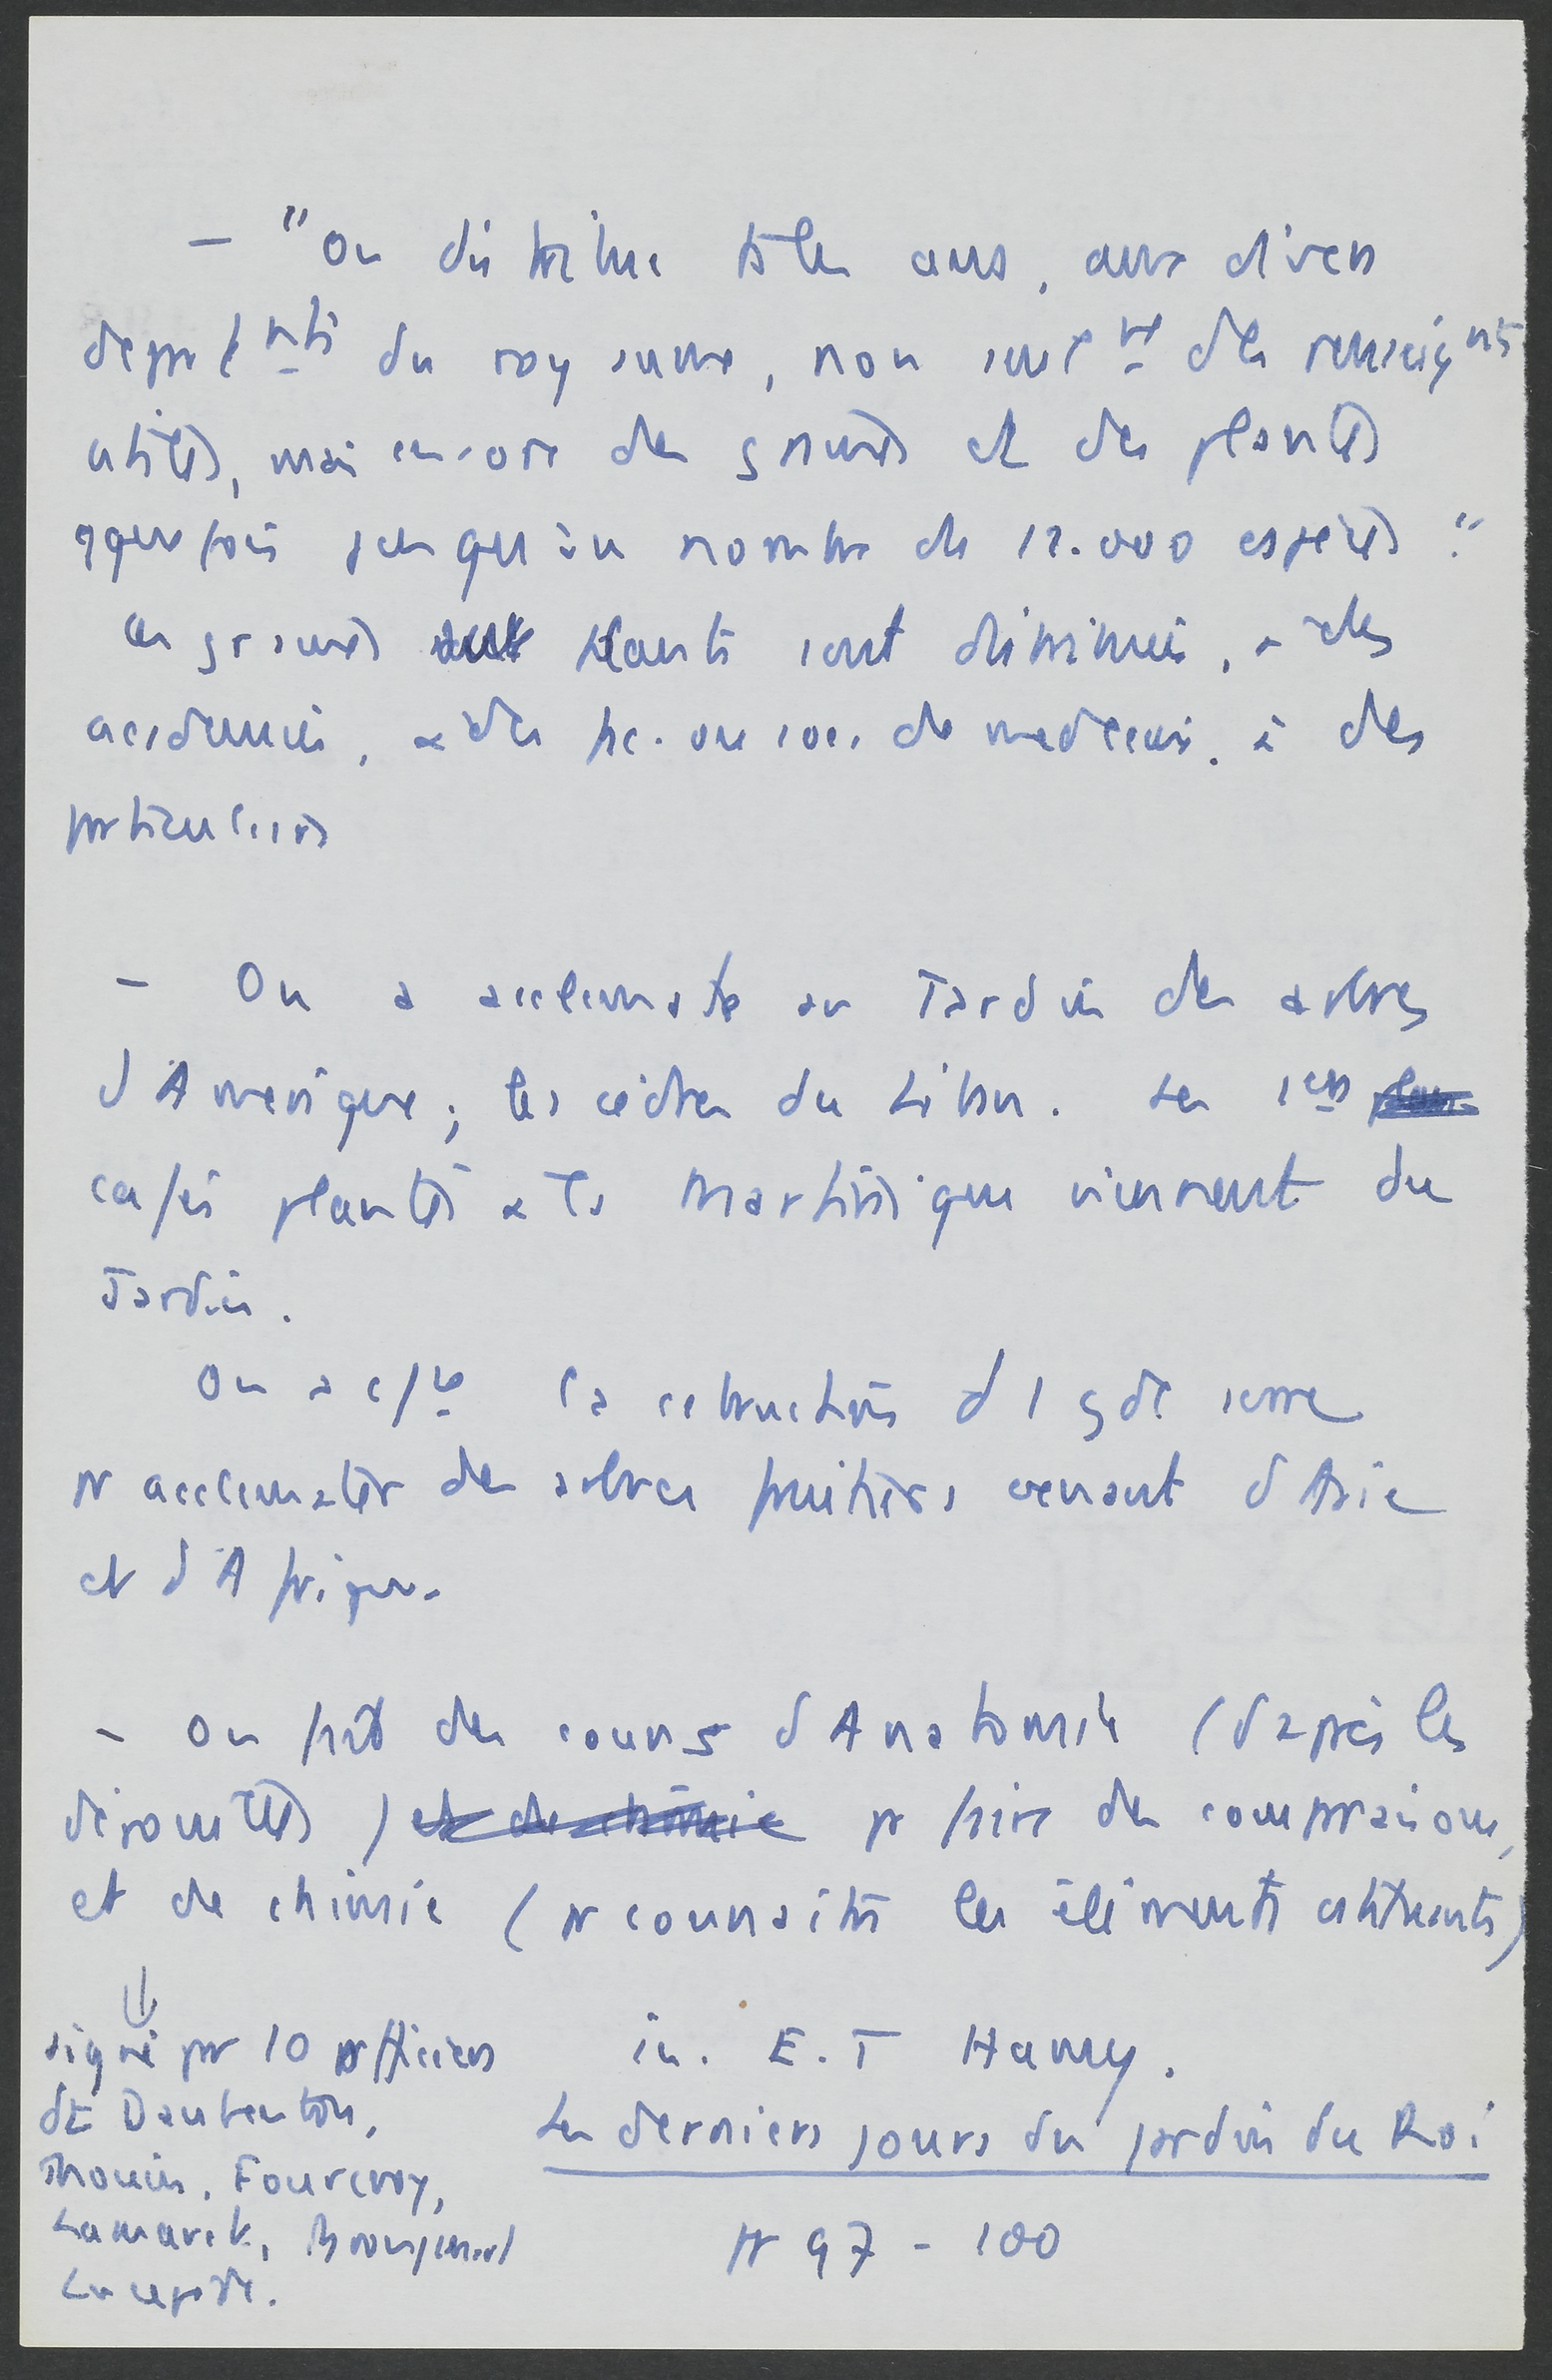 - "On distribue ts les ans, aux divers
départnts du royaume, non seulnt des renseignts
utiles, mais encore des graines et des plantes
qquefois jusqu'au nombre de 12.000 espèces."
Ces graines plants sont distribués, à des
académies, à des fac. ou soc. de médecins, à des
particuliers
- On a acclimaté au Jardin des arbres
d'Amérique; les cèdres du Liban. Les 1ers
cafés plantés à la Martinique viennent du
Jardin.
On a la cstruction d'1 gde serre
pr acclimater des arbres fruitiers venant d'Asie
et d'Afrique.
- On fait des cours d'Anatomie (d'après les
) et de chimie pr faire des comparaisons,
et de chimie (pr connaître les éléments cstituants)
signé par 10 officiers
dt Daubenton,
Thouin, Fourcroy,
Lamarck, Brongniart
Lacepède.
in. E.T Hamy.
Les derniers jours du jardin du Roi
pr 97 - 100